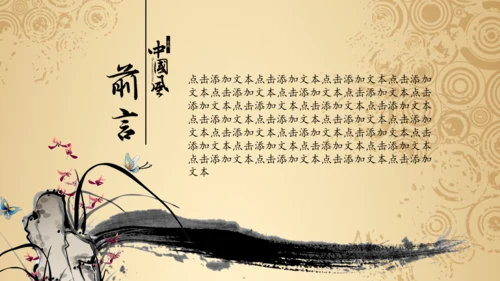 中國風
前言
点击添加文本点击添加文本点击添加文本点击添加
文本点击添加文本点击添加文本点击添加文本点击
添加文本点击添加文本点击添加文本点击添加文本
点击添加文本点击添加文本点击添加文本点击添加
文本点击添加文本点击添加文本点击添加文本点击
添加文本点击添加文本点击添加文本点击添加文本
点击添加文本点击添加文本点击添加文本点击添加
文本